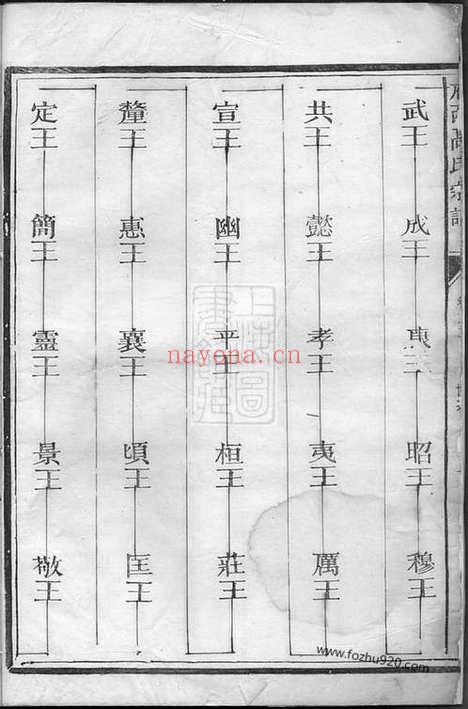 武王 成王 康王 昭王 穆王
共王 懿王 孝王 夷王 厲王
宣王 幽王 平王 桓王 莊王
釐王 惠王 襄王 頃王 匡王
定王 簡王 靈王 景王 敬王
nayona.cn
www.fozhu920.com